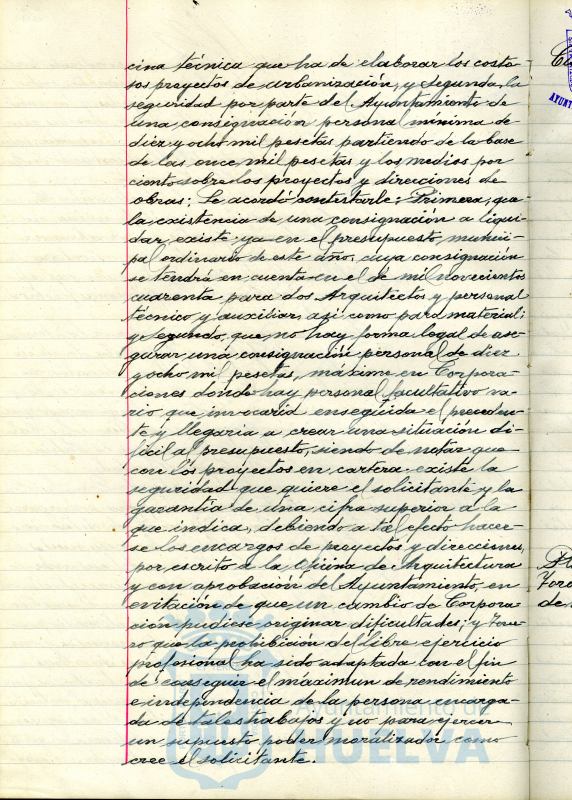 cina técnica que ha de elaborar los costo
sos proyectos de urbanización, y segunda, la
seguridad por parte del Ayuntamiento de
una consignación personal mínima de
diez y ocho mil pesetas partiendo de la base
de las once mil pesetas y los medios por
ciento sobre los proyectos y direcciones de
obras; Se acordó contestarle: Primera, que
la existencia de una consignación a liqui
dar, existe ya en el presupuesto munici
pal ordinario de este año, cuya consignación
se tendrá en cuenta en el de mil novecientos
cuarenta para dos Arquitectos y personal
técnico y auxiliar, así como para material;
y segundo, que, no hay forma legal de ase
gurar una consignación personal de diez
y ocho mil pesetas, máxime en Corpora
ciones donde hay personal facultativo va
rio que invocaría enseguida el preceden
te y llegaría a crear una situación di
fícil al presupuesto, siendo de notar que
con los proyectos en cartera existe la
seguridad que quiere el solicitante y la
garantía de una cifra superior a la
que indica, debiendo a tal efecto hacer
se los encargos de proyectos y direcciones,
por escrito a la Oficina de Arquitectura
y con aprobación del Ayuntamiento, en
evitación de que un cambio de Corpora
ción pudiese originar dificultades; y Terce
ro que la prohibición del libre ejercicio
profesional ha sido adaptada con el fin
de conseguir el máximun de rendimiento
e independencia de la persona encarga
da de tales trabajos y no para ejercer
un supuesto poder moralizador como
cree el solicitante.
Ayuntamiento de
HUELVA